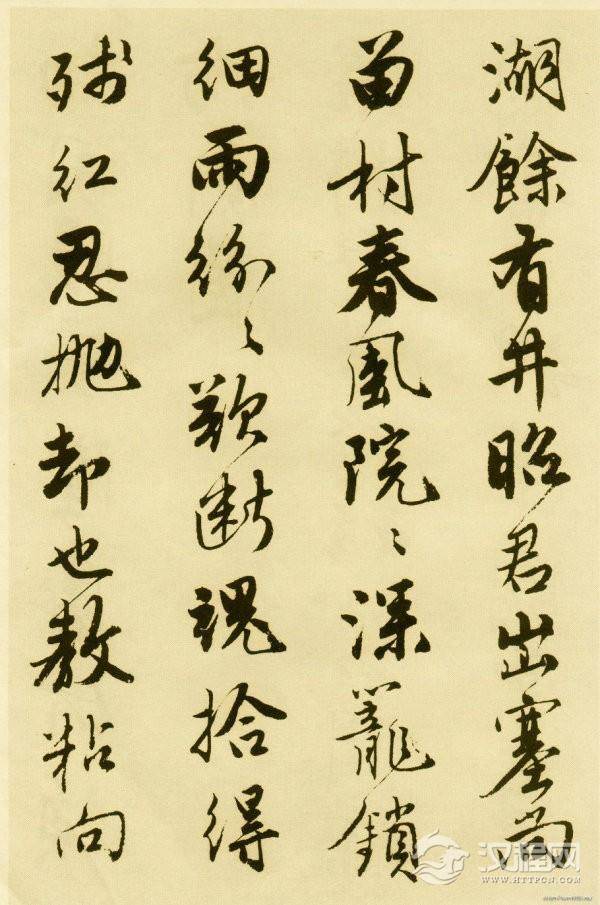 湖餘有井昭君出塞尚
留村春風院〻深籠鎖
細雨紛〻欲斷魂拾得
殘红忍抛却也教粘向
汉程网
WWW.HTTPCN.COM